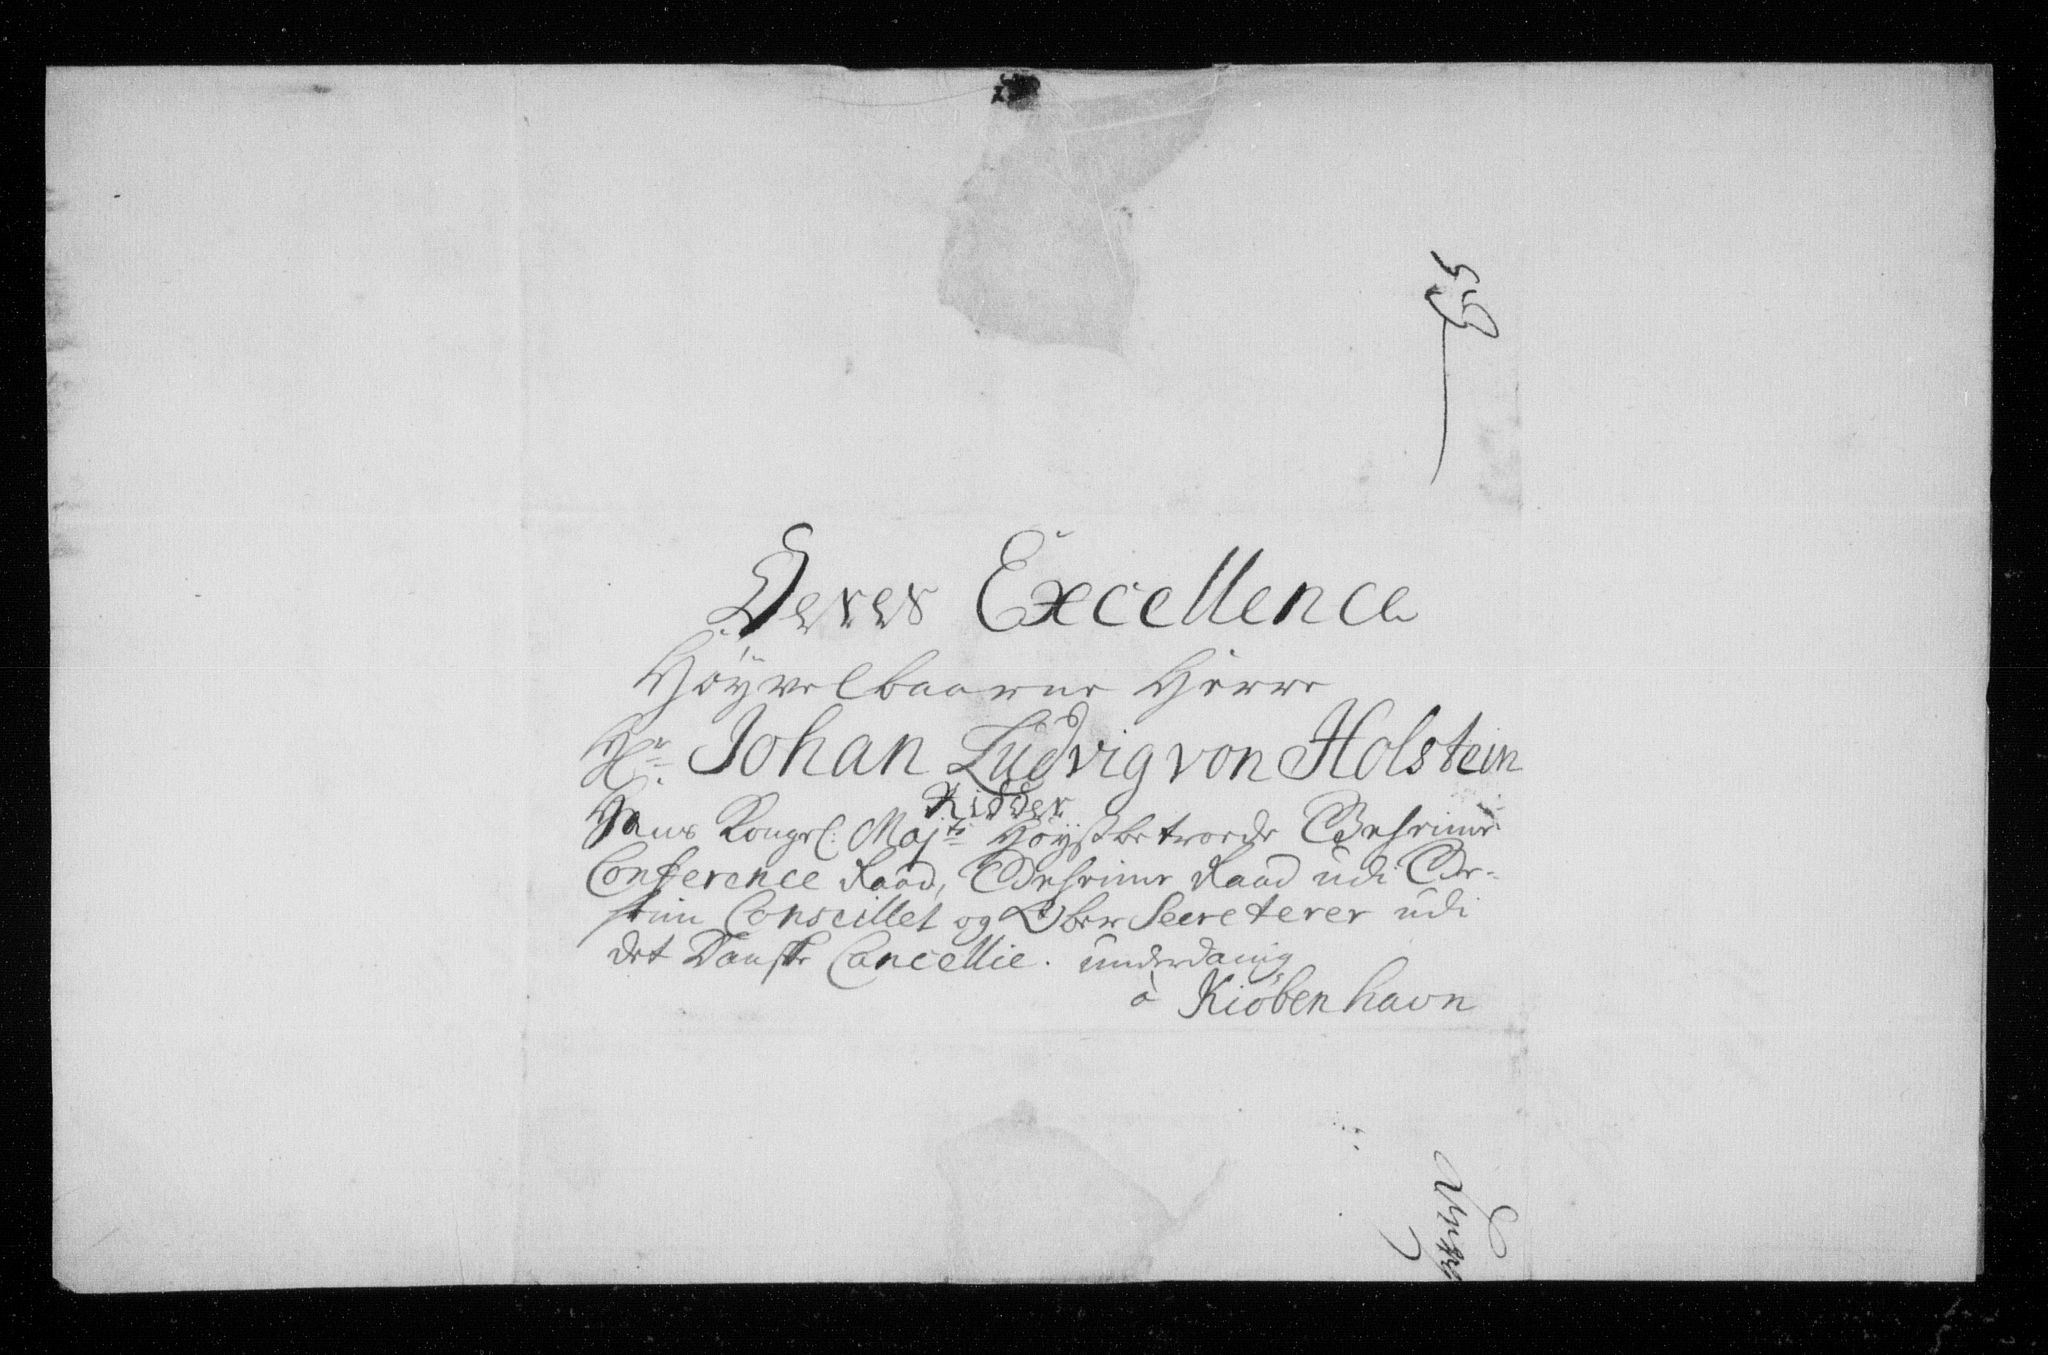 Deres Excellence
Høyvelbaarne Herre
Hr. Johan Ludvig von Holstein
Ridder
Hans Kongel: Majts Høystbetroede Geheime
Conference Raad, Geheime Raad udi Ge-
heime Conseillet og Ober Secreterer udi
det Danske Cancellie. underdanig
à Kiöbenhavn